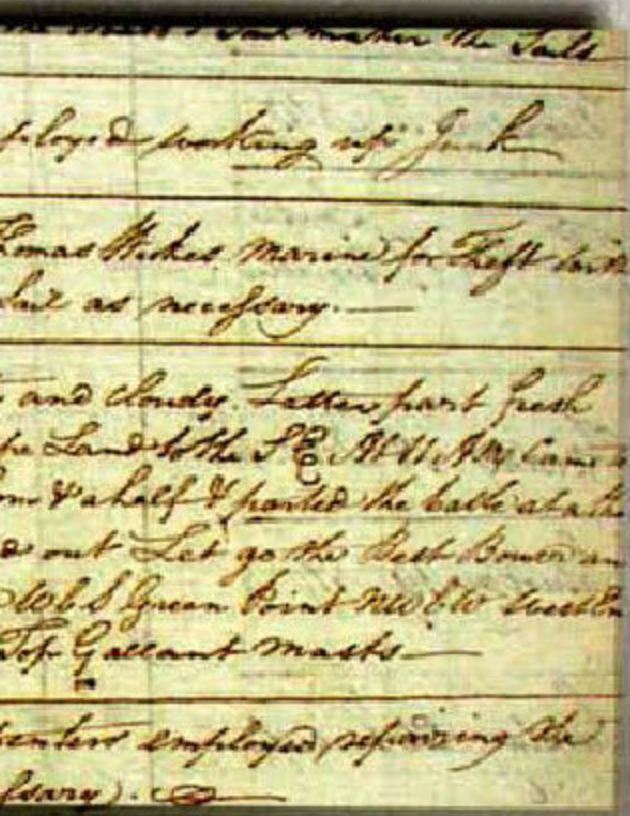 maker the Sails
ployed working up Junk
homas Wickes Marine for Theft
Sail as necessary.
and cloudy. Latter part fresh
Land to the SE At 11 AM Came
& a half & parted the Cable at a the
out Let go the Best Bower an
WbS Green Point NWbW
Top Gallant masts
penters employed repairing the
ssary).